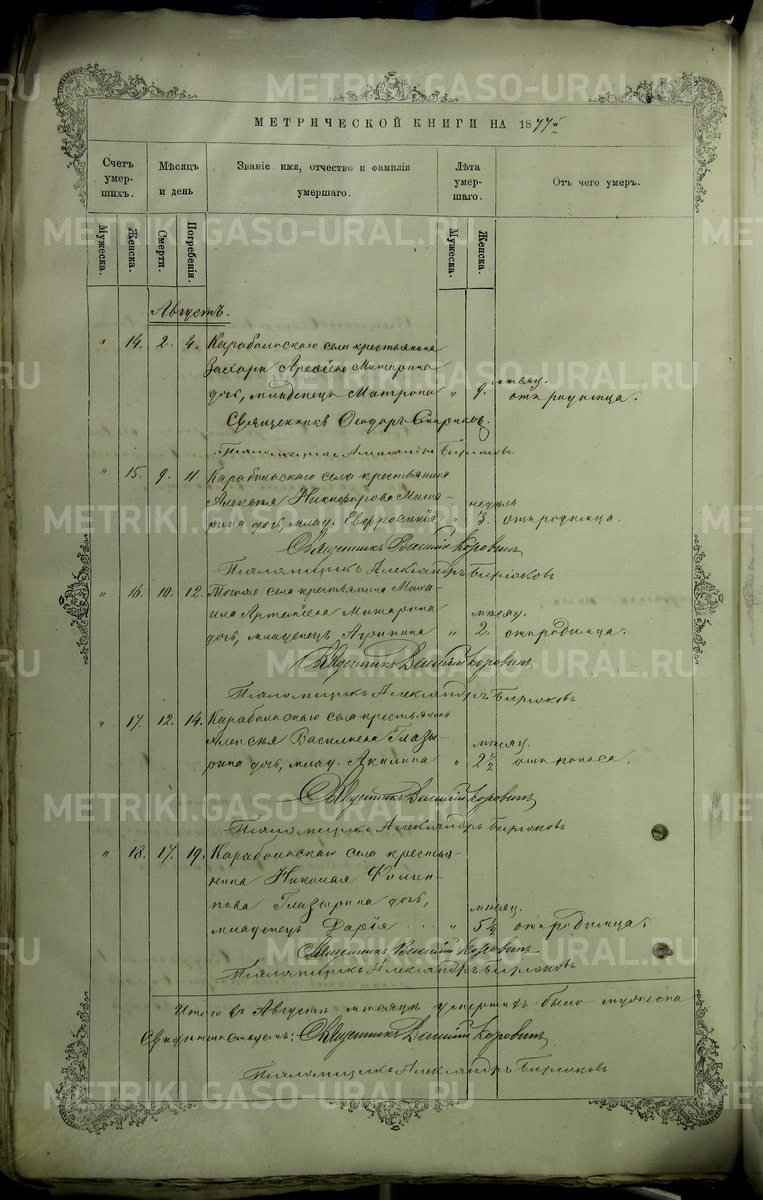 METRIKI.GASO-URAL.RU
МЕТРИЧЕСКОЙ КНИГИ НА 1877й
Счетъ умер-шихъ.
Мѣсяцъ и день
Званіе имя, отчество и фамилія умершаго.
Лѣта умер-шаго.
Отъ чего умеръ.
Мужеска.
Женска.
Смерти.
Погребенія.
Мужеска.
Женска.
Августъ.
" 14. 2. 4. Карабольскаго села крестьянина
Захара Митарина мѣсяц.
дочь, младенецъ Матрона " 9. отъ родимца.
Священникъ Ѳеодоръ
Псаломщикъ Александръ Бирюковъ.
" 15. 9. 11. Карабольскаго села крестьянина
Алексѣя Никифорова Мита- недѣль
рина дочь, млад. Евфросинія " 3. отъ родимца.
Священникъ Василій Коровинъ
Псаломщикъ Александръ Бирюковъ
" 16. 10. 12. Тогоже села крестьянина Миха-
ила Артемьева Митарина мѣсяц.
дочь, младенецъ Агрипина " 2. отъ родимца.
Священникъ Василій Коровинъ
Псаломщикъ Александръ Бирюковъ
" 17. 12. 14. Карабольскаго села крестьянина
Алексѣя Васильева Глазы- мѣсяц.
рина дочь, млад. Акилина " 2½ отъ поноса.
Священникъ Василій Коровинъ
Псаломщикъ Александръ Бирюковъ
" 18. 17. 19. Карабольскаго села крестья-
нина Николая Филип-
пова Глазырина дочь, мѣсяц.
младенецъ Дарія " 5½ отъ родимца.
Священникъ Василій Коровинъ
Псаломщикъ Александръ Бирюковъ
Итого въ Августѣ мѣсяцѣ умершихъ было мужеска
Священникъ Василій Коровинъ
Псаломщикъ Александръ Бирюковъ